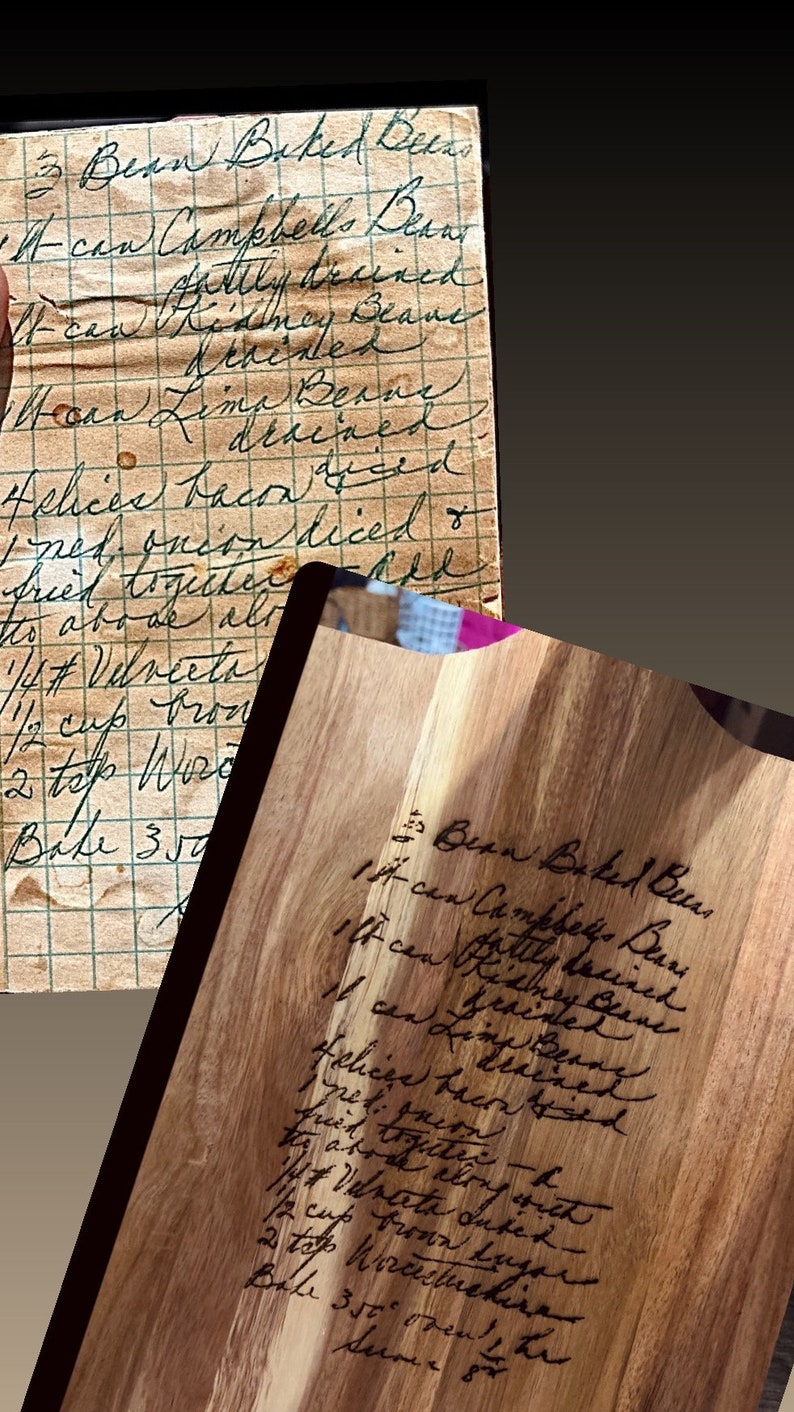 3 Bean Baked Beans
1 lt can Campbells Beans
partly drained
lt can Kidney Beans
drained
1 lt can Lima Beans
drained
4 slices bacon diced
1 med. onion diced &
fried together - Add
to above alo
1/4 # Velveeta
1/2 cup brow
2 tsp Worc
Bake 350
3 Bean Baked Beans
1 lt can Campbells Beans
partly drained
1 lt can Kidney Beans
drained
1 can Lima Beans
drained
4 slices bacon diced
1 med. onion
fried together -
to above along with
1/4 # Velveeta cubed -
1/2 cup brown sugar
2 tsp Worcestershire
Bake 350° oven 1 hr
Serves 8